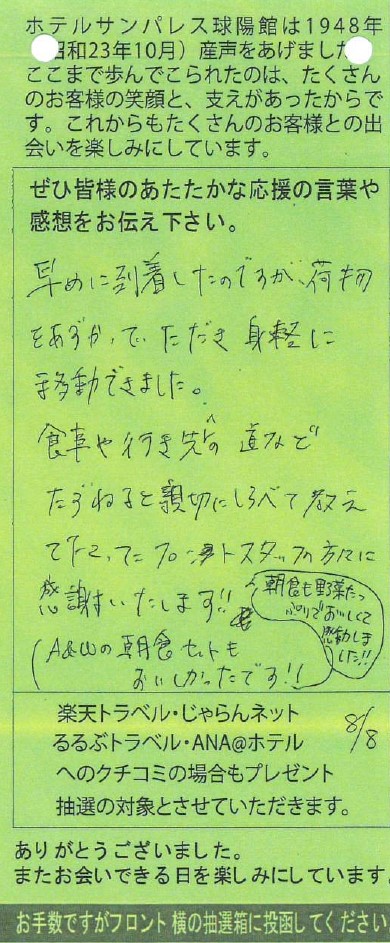 ホテルサンパレス球陽館は1948年
昭和23年10月）産声をあげました
ここまで歩んでこられたのは、たくさん
のお客様の笑顔と、支えがあったからで
す。これからもたくさんのお客様との出
会いを楽しみにしています。
ぜひ皆様のあたたかな応援の言葉や
感想をお伝え下さい。
早めに到着したのですが、荷物
をあずかっていただき身軽に
移動できました。
食事や行き先への道など
たずねると親切にしらべて教え
て下さったフロントスタッフの方々に
感謝いたします!!
朝食も野菜たっ
ぷりでおいしくて
感動しま
した!!
(A&Wの朝食セットも
おいしかったです!!
楽天トラベル・じゃらんネット
るるぶトラベル・ANA@ホテル
へのクチコミの場合もプレゼント
抽選の対象とさせていただきます。
8/8
ありがとうございました。
またお会いできる日を楽しみにしています。
お手数ですがフロント横の抽選箱に投函してください